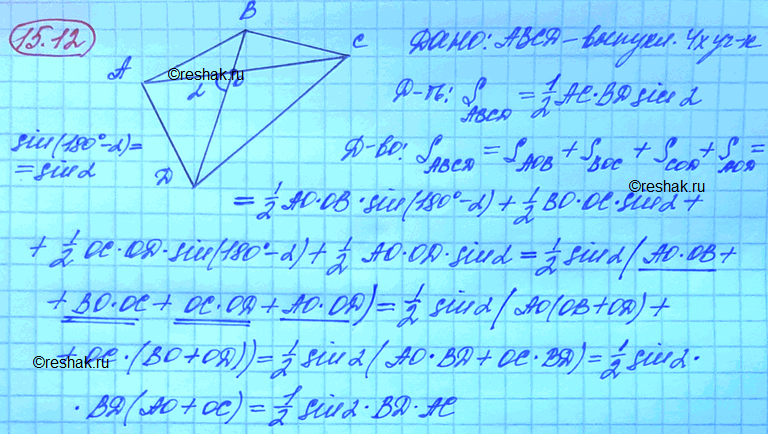 15.12
B
C
A
©reshak.ru
α
O
D
Дано: ABCD – выпукл. 4хуг-к
Д-ть: S_ABCD = 1/2 AC·BD sin α
sin(180°-α) =
= sin α
Д-во: S_ABCD = S_AOB + S_BOC + S_COD + S_AOD =
©reshak.ru
= 1/2 AO·OB·sin(180°-α) + 1/2 BO·OC·sin α +
+ 1/2 OC·OD·sin(180°-α) + 1/2 AO·OD·sin α = 1/2 sin α (AO·OB +
+ BO·OC + OC·OD + AO·OD) = 1/2 sin α (AO(OB+OD) +
+ OC·(BO+OD)) = 1/2 sin α (AO·BD + OC·BD) = 1/2 sin α ·
©reshak.ru
· BD(AO+OC) = 1/2 sin α · BD · AC